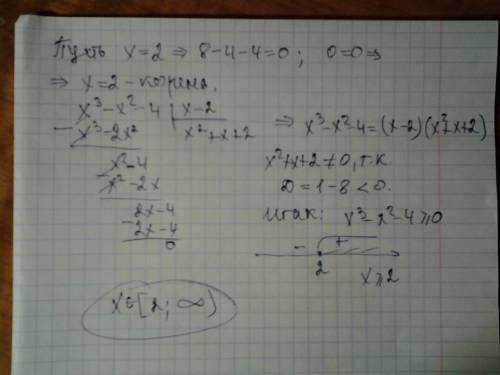 Пусть x=2 ⇒ 8-4-4=0; 0=0 ⇒
⇒ x=2 - корень.
x³-x²-4 | x-2
- x³-2x² x²+x+2
⇒ x³-x²-4=(x-2)(x²+x+2)
x²-4
- x²-2x
2x-4
- 2x-4
0
x²+x+2≠0, т.к.
D=1-8<0.
Итак: x³-x²-4≥0
- +
2
x≥2
x∈[2; ∞)